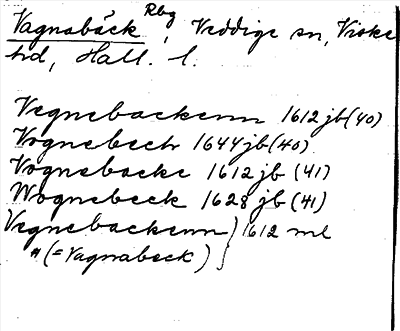 Vagnabäck Rbg, Veddige sn, Viske
hd, Hall. l.
Vegnebackenn 1612 jb (40)
Vognebech 1644 jb (40)
Vognebacke 1612 jb (41)
Wognebeck 1628 jb (41)
Vegnebackenn } 1612 ml
" (= Vagnabeck) }